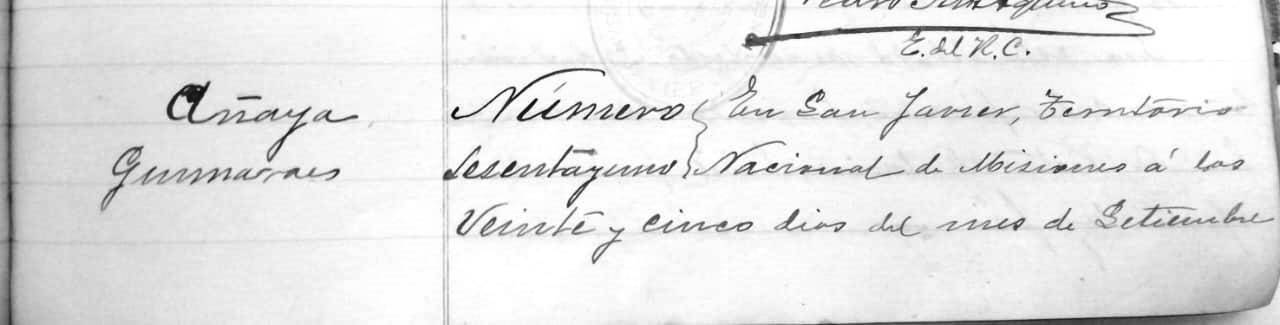 E. del R. C.
Añaya
Guimaraes
Número { En San Javier, Territorio
Sesentayuno } Nacional de Misiones á los
Veinte y cinco dias del mes de Setiembre